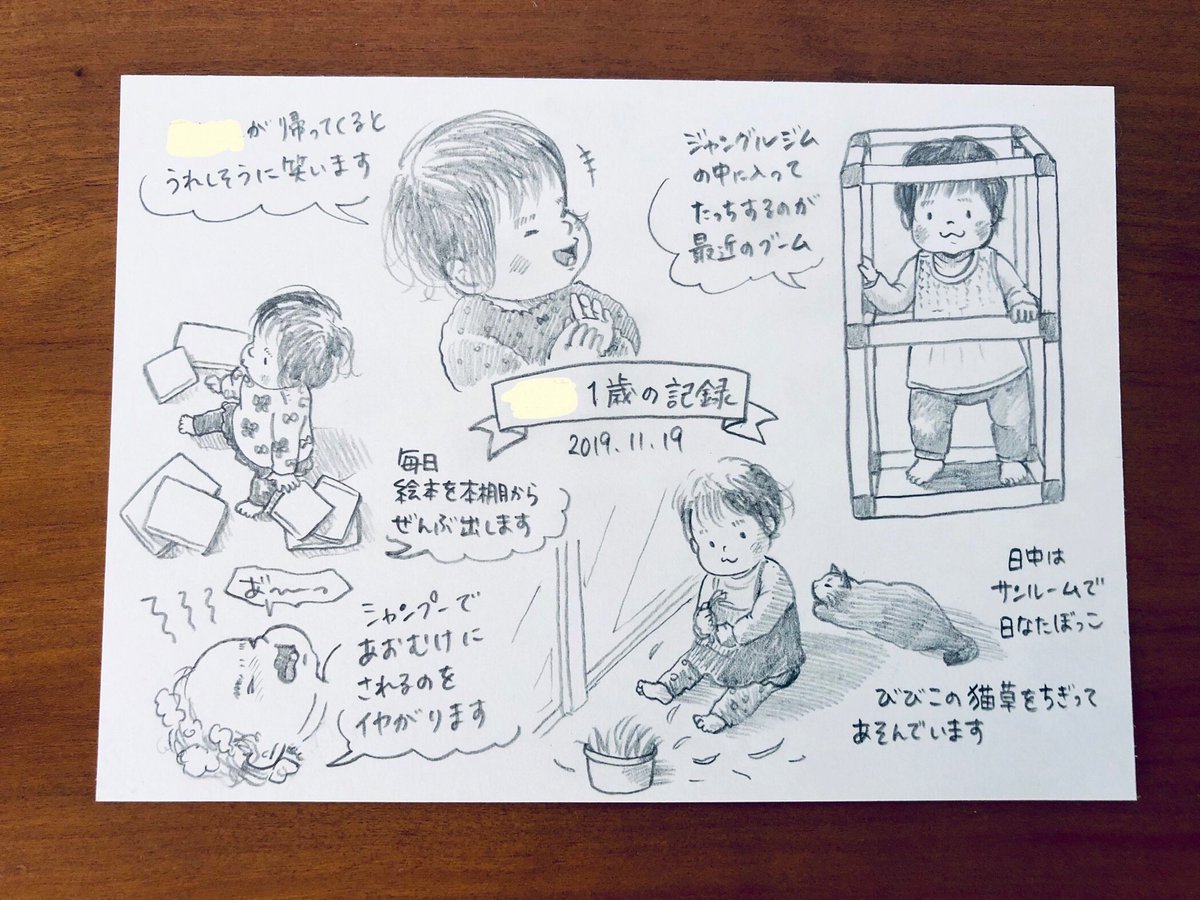 が帰ってくると
うれしそうに笑います
ジャングルジム
の中に入って
たっちするのが
最近のブーム
1歳の記録
2019.11.19
毎日
絵本を本棚から
ぜんぶ出します
お゛〜〜っ
シャンプーで
あおむけに
されるのを
イヤがります
日中は
サンルームで
日なたぼっこ
びびこの猫草をちぎって
あそんでいます